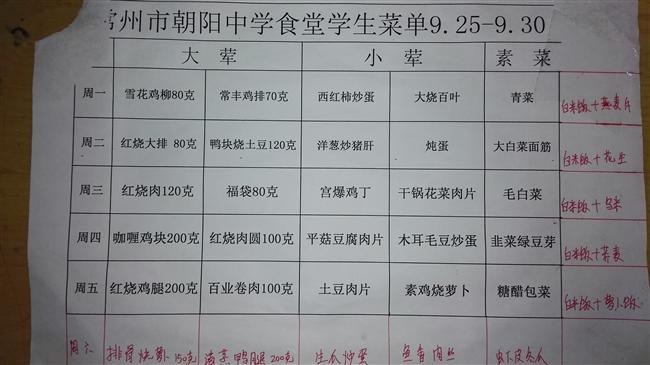 常州市朝阳中学食堂学生菜单9.25-9.30
大 荤 小 荤 素 菜
周一 雪花鸡柳80克 常丰鸡排70克 西红柿炒蛋 大烧百叶 青菜 白米饭+燕麦片
周二 红烧大排 80克 鸭块烧土豆120克 洋葱炒猪肝 炖蛋 大白菜面筋 白米饭+花生
周三 红烧肉120克 福袋80克 宫爆鸡丁 干锅花菜肉片 毛白菜 白米饭+乌米
周四 咖喱鸡块200克 红烧肉圆100克 平菇豆腐肉片 木耳毛豆炒蛋 韭菜绿豆芽 白米饭+荞麦
周五 红烧鸡腿200克 百业卷肉100克 土豆肉片 素鸡烧萝卜 糖醋包菜 白米饭+萝卜饭
周六 排骨烧 150克 鸭腿200克 生瓜炒蛋 鱼香肉丝 虾皮冬瓜